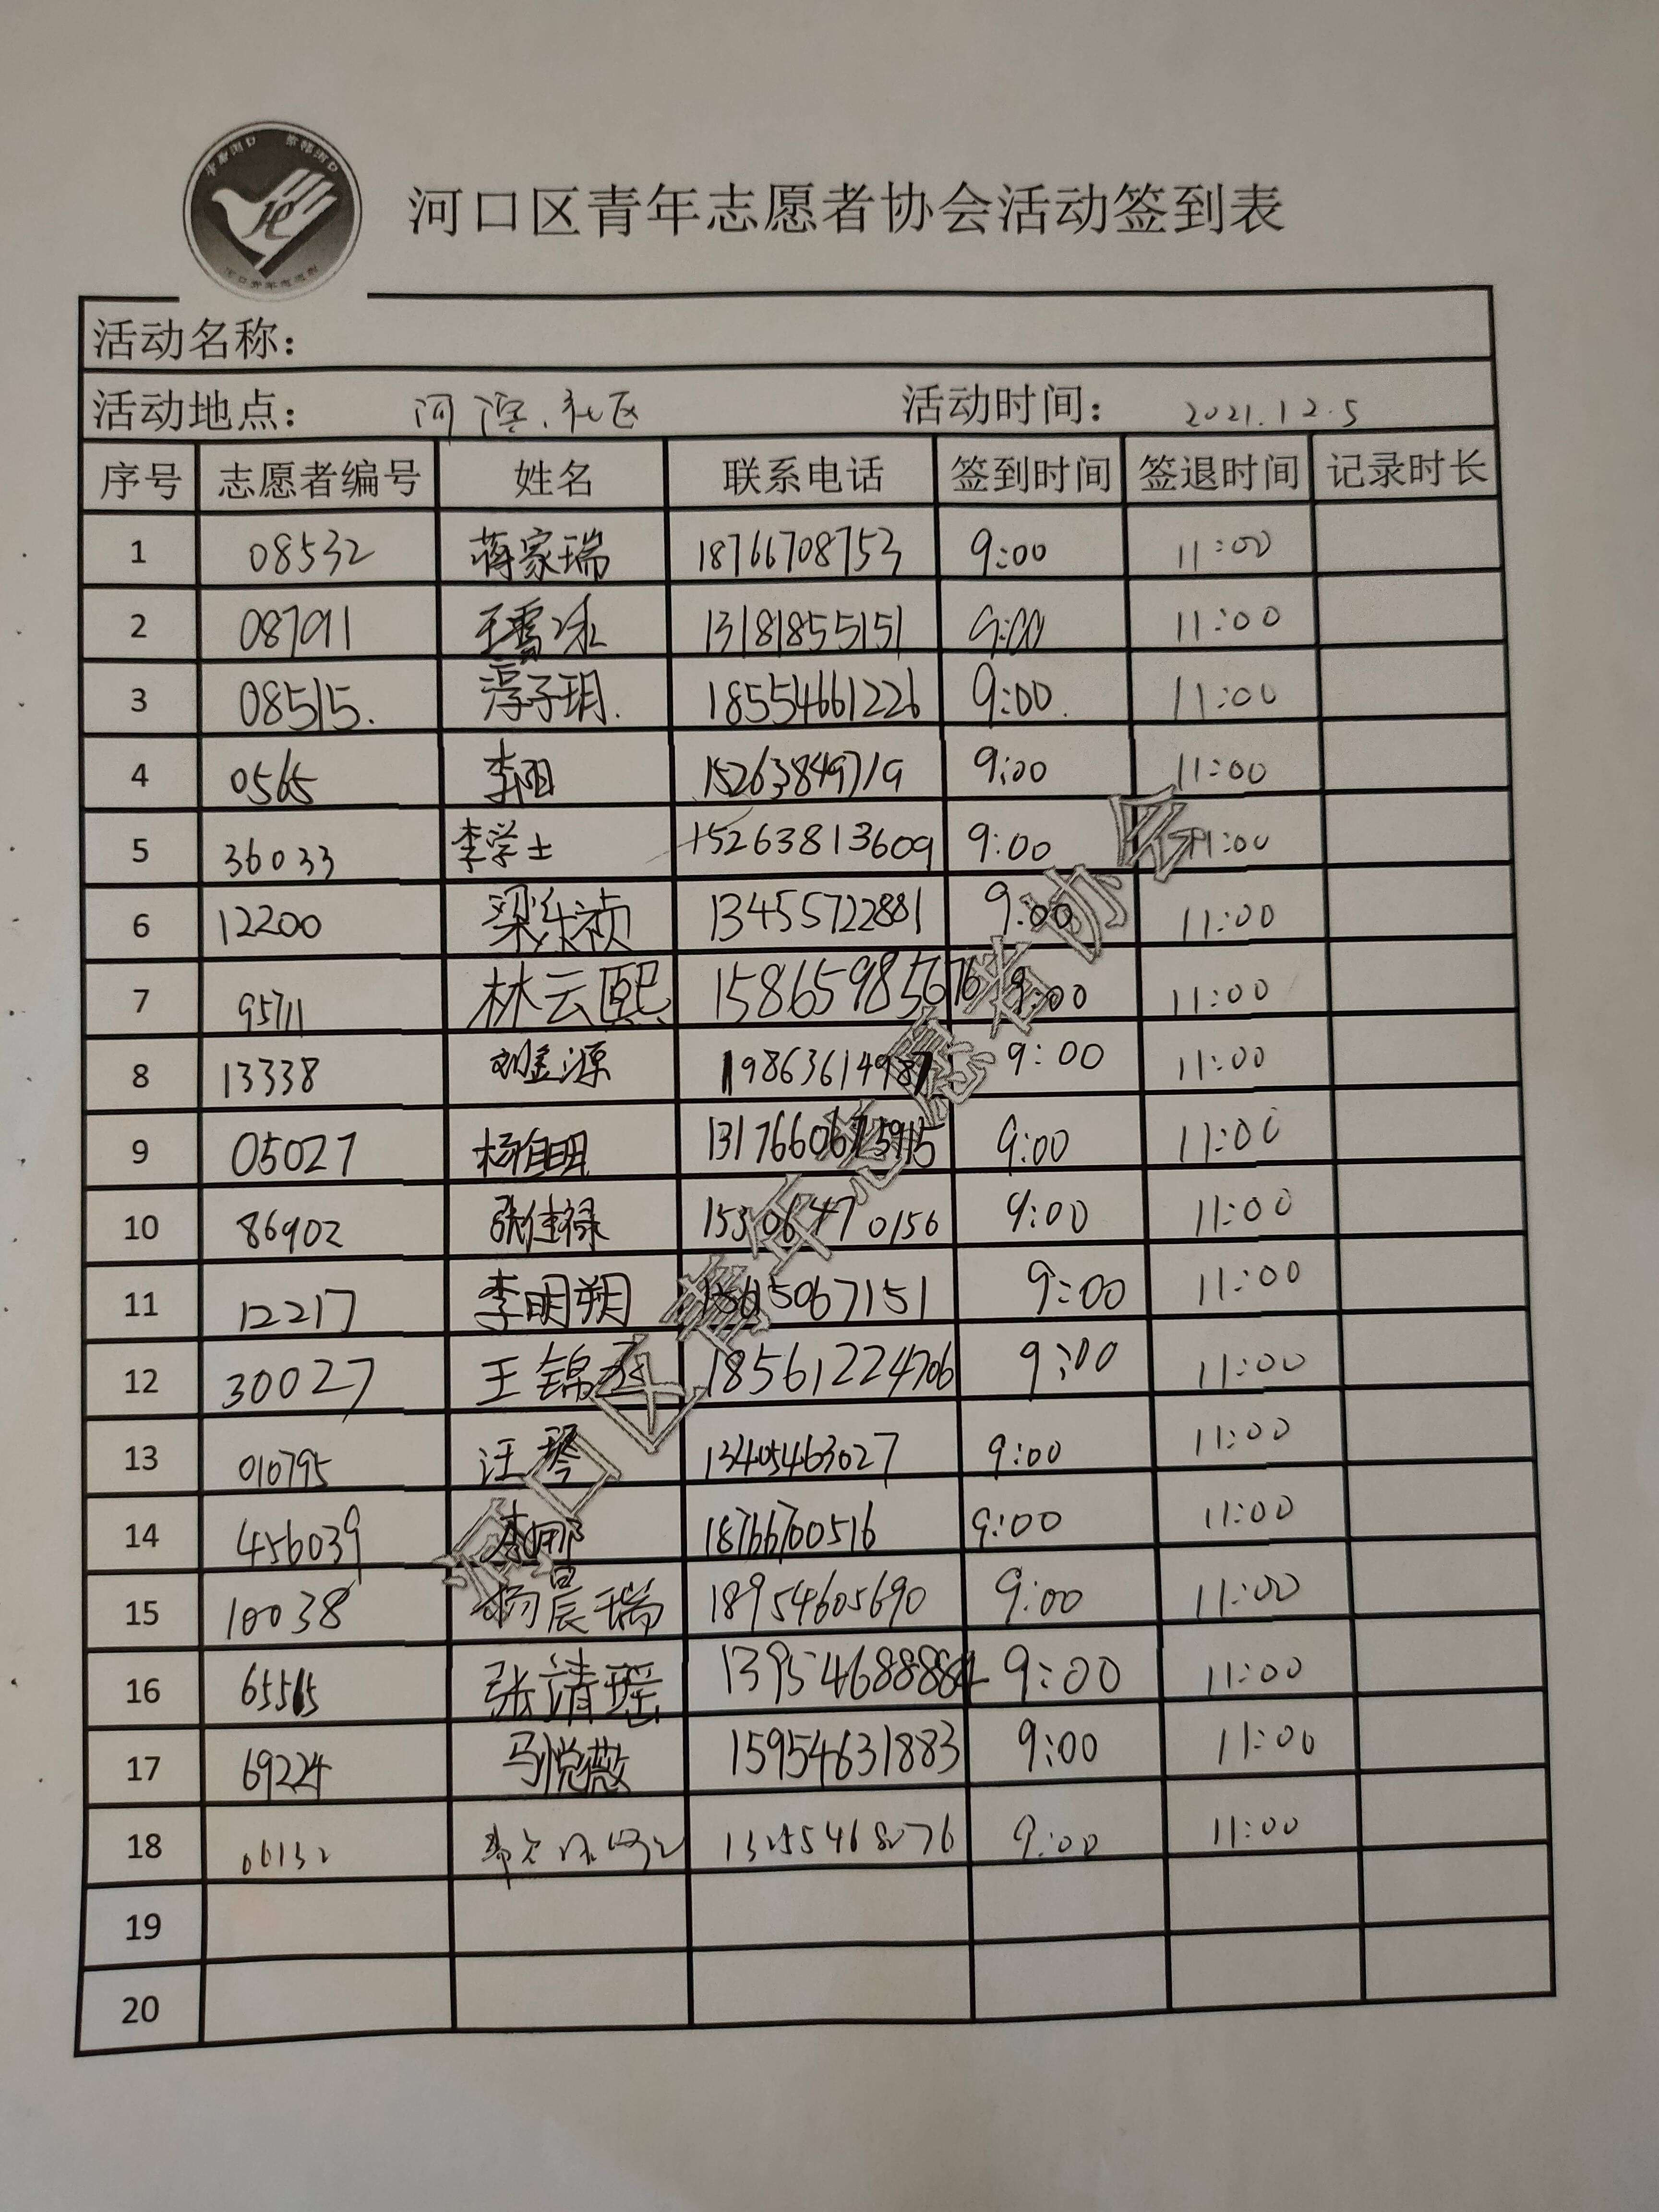 河口区青年志愿者协会活动签到表
活动名称：
活动地点： 河滨社区 活动时间： 2021.12.5
序号 志愿者编号 姓名 联系电话 签到时间 签退时间 记录时长
1 08532 蒋家瑞 18766708753 9:00 11:00
2 08791 王雪冰 13181855151 9:00 11:00
3 08515. 淳子玥. 18554661226 9:00. 11:00
4 0565 李阳 15263849719 9:00 11:00
5 36033 李学士 15263813609 9:00 11:00
6 12200 梁乐祯 13455722881 9:00 11:00
7 95711 林云熙 15865985676 9:00 11:00
8 13338 刘金源 19863614987 9:00 11:00
9 05027 杨自明 9:00 11:00
10 86902 张佳禄 15306470156 9:00 11:00
11 12217 李明朔 15615067151 9:00 11:00
12 30027 王锦 18561224706 9:00 11:00
13 010795 汪琴 13405463027 9:00 11:00
14 456039 李娜 18766700516 9:00 11:00
15 10038 杨晨瑞 18954605690 9:00 11:00
16 65515 张清瑶 13954688884 9:00 11:00
17 69224 马悦薇 15954631883 9:00 11:00
18 06132 9:00 11:00
19
20
河口区青年志愿者协会